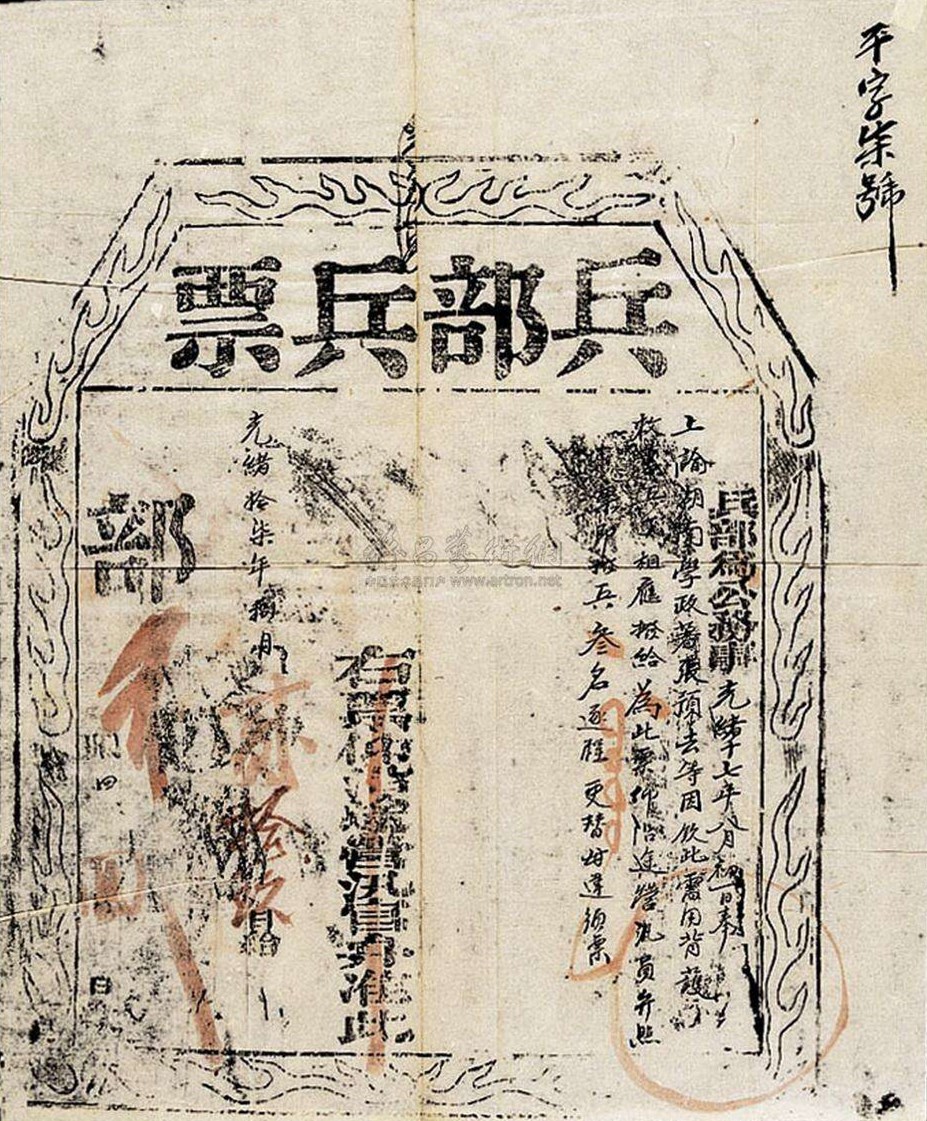 平字柒號
兵部兵票
兵部為公務事光緒十七年八月初一日奉
上諭湖南學政著張預去等因欽此需用背護
敕書兵 相應撥給為此票仰沿途營汛員弁照
票即撥兵叁名逐程更替毋違須票
右票仰沿途營汛員弁准此
光緒拾柒年捌月
拾玖
部
限 回
日
www.artron.net